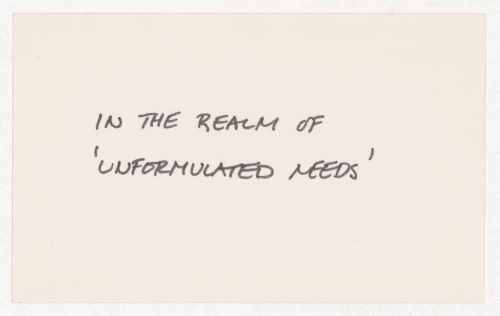 IN THE REALM OF
'UNFORMULATED NEEDS'